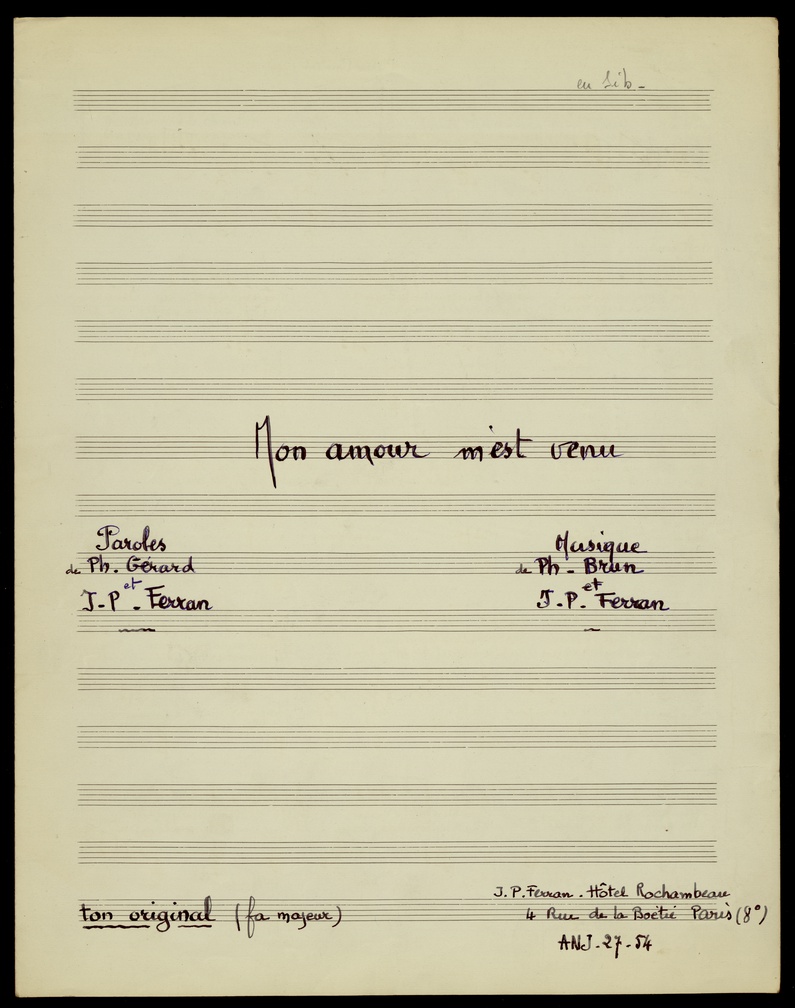 en Sib -
Mon amour m'est venu
Paroles
de Ph. Gérard
et
J-P. Ferran
Musique
de Ph - Brun
et
J.P. Ferran
ton original (fa majeur)
J.P. Ferran. Hôtel Rochambeau
4 Rue de la Boëtie Paris (8°)
ANJ. 27-54